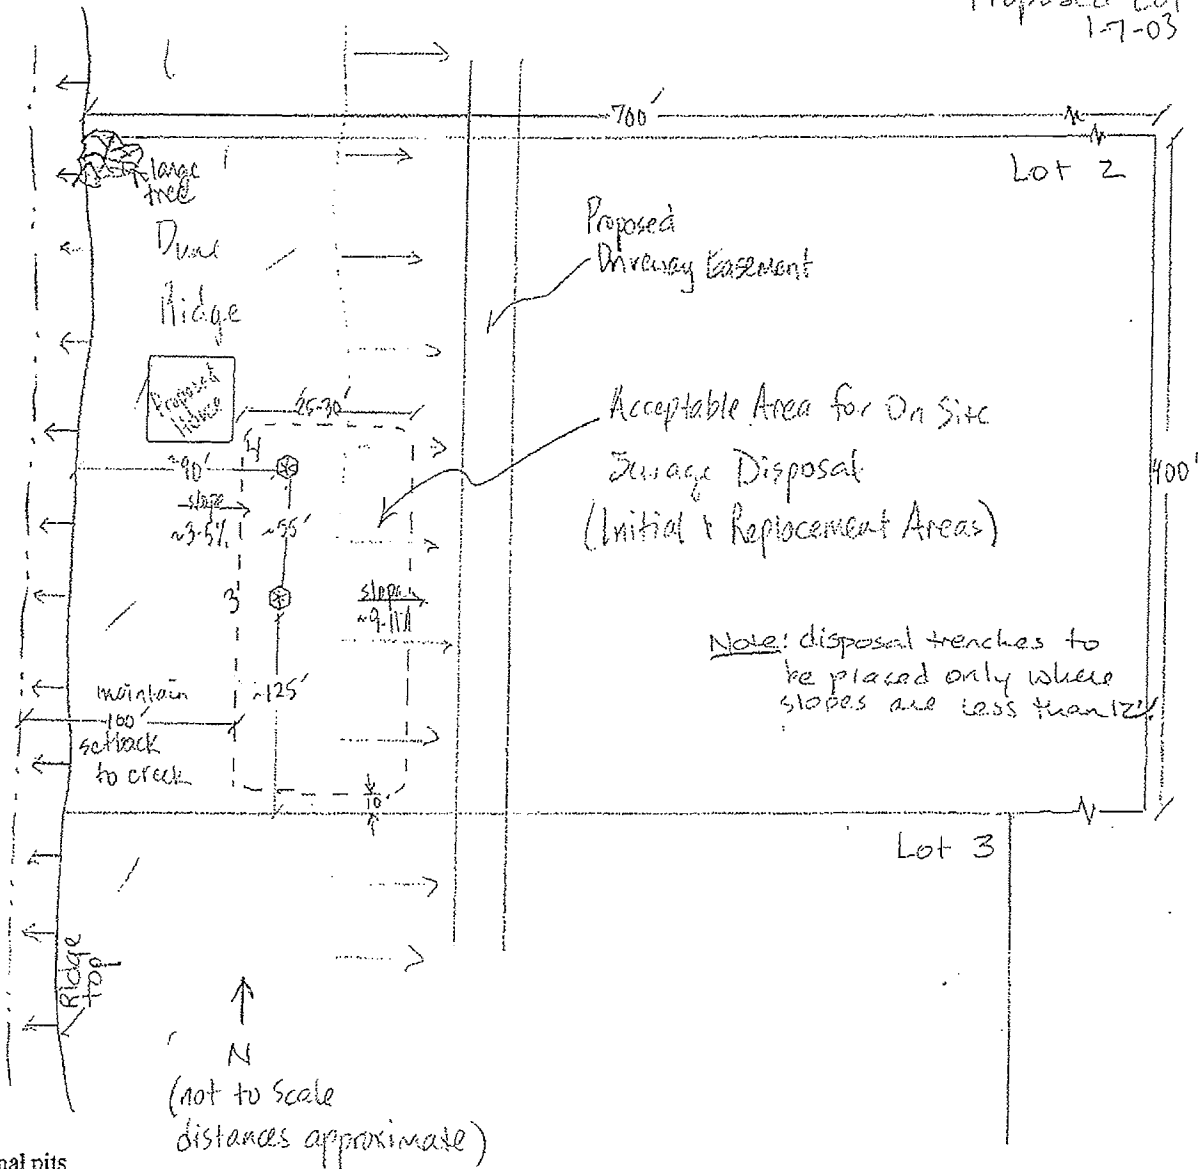 Proposed Lot
1-7-03
700'
Lot 2
large
tree
Dune
Ridge
Proposed
Driveway Easement
Proposed
House
25-30'
Acceptable Area for On Site
Sewage Disposal
(Initial & Replacement Areas)
400'
4
~90'
slope
~3-5%
~55'
3
slope
Note: disposal trenches to
be placed only where
slopes are less than 12%
~125'
maintain
100'
setback
to creek
10'
Lot 3
Ridge
top
N
(not to scale
distances approximate)
nal pits